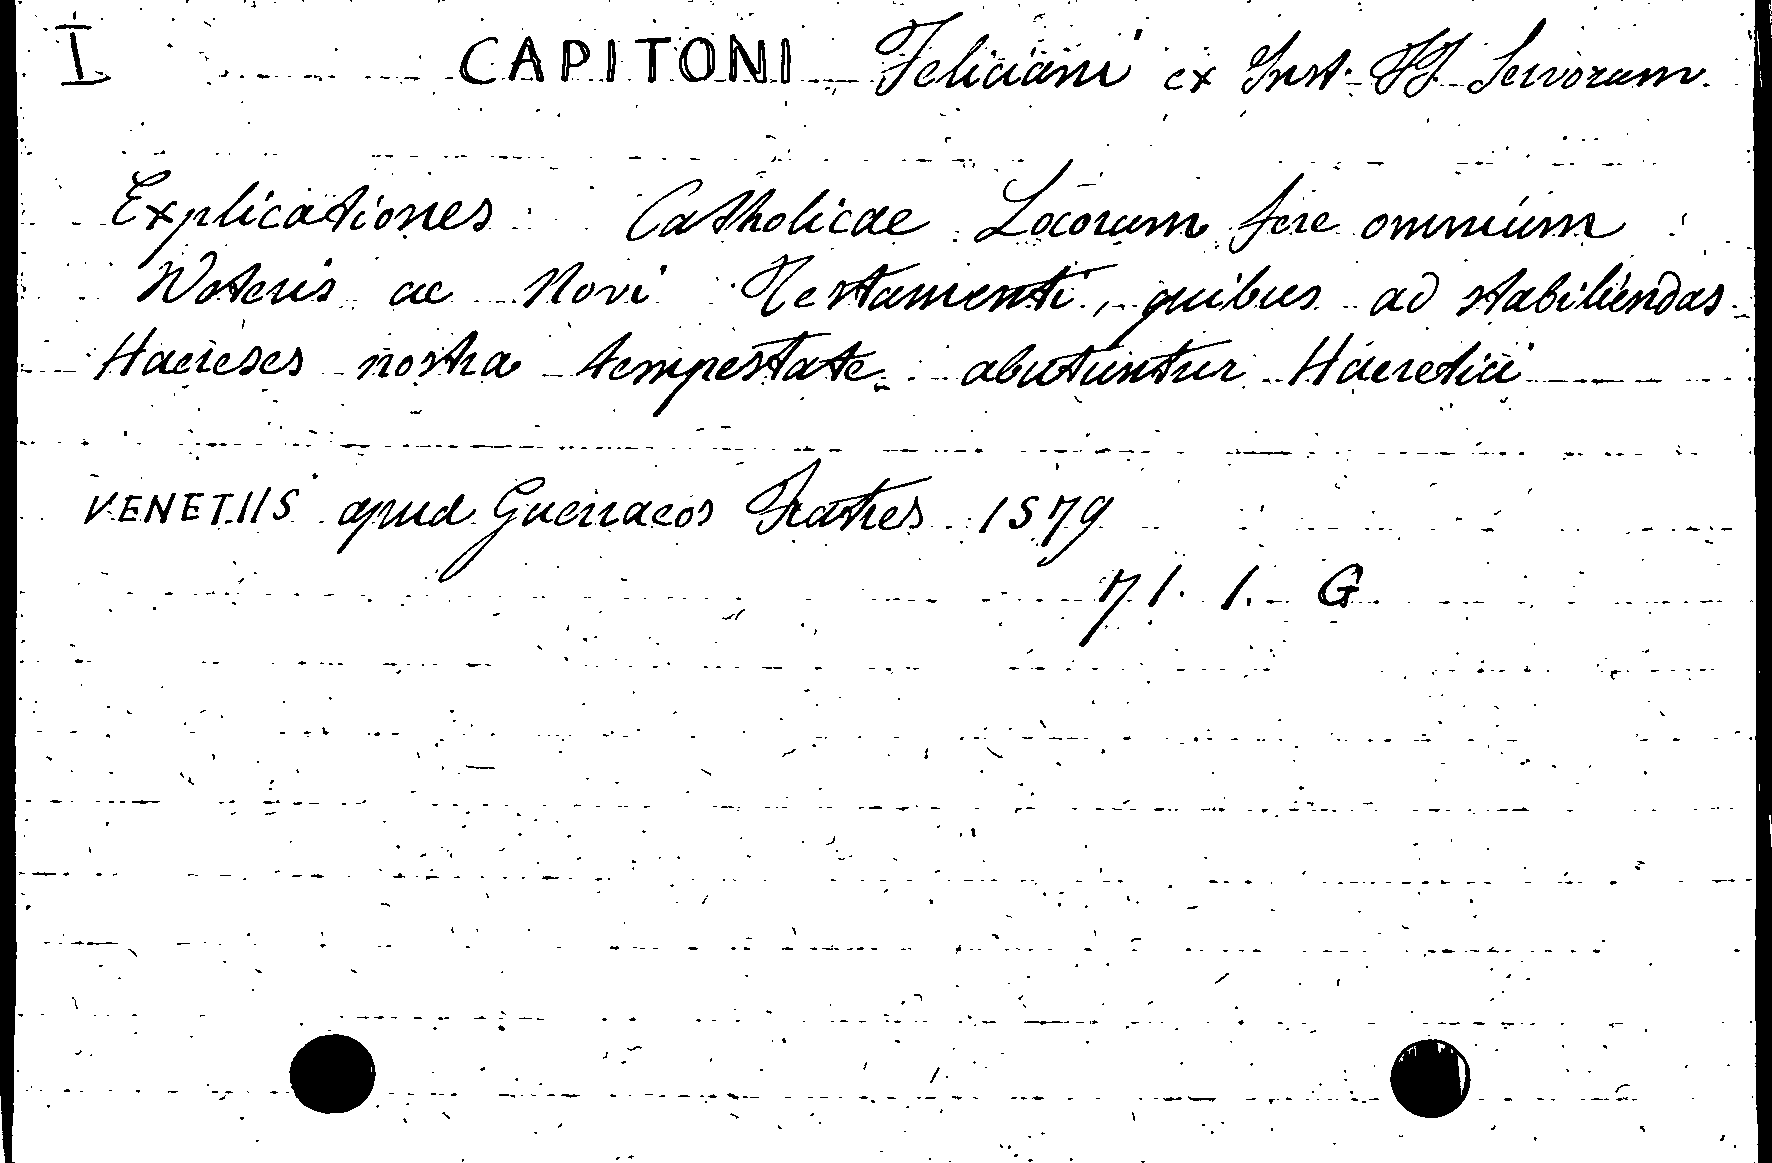 I CAPITONI Feliciani ex Inst. FF. Servorum.
Explicationes Catholicae Locorum fere omnium
Veteris ac Novi Testamenti, quibus ad stabiliendas
Haereses nostra tempestate abutuntur Haeretici
VENETIIS apud Guerraeos Fratres 1579
71. 1. G